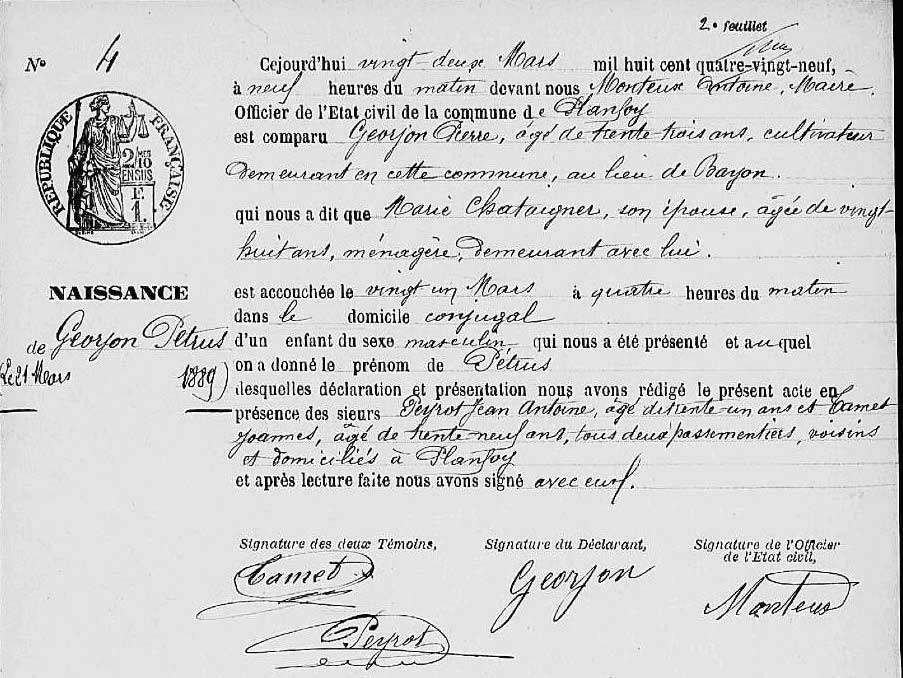 2e feuillet
No 4
RÉPUBLIQUE FRANÇAISE
2/10 EN SUS
F. 1.
Cejourd'hui vingt-deux Mars mil huit cent quatre-vingt-neuf,
à neuf heures du matin devant nous Monteux Antoine, Maire,
Officier de l'Etat civil de la commune de Planfoy
est comparu Georjon Pierre, âgé de trente trois ans, cultivateur
demeurant en cette commune, au lieu de Bayon.
qui nous a dit que Marie Chataigner, son épouse, âgée de vingt-
huit ans, ménagère, demeurant avec lui.
est accouchée le vingt un Mars à quatre heures du matin
dans le domicile conjugal
d'un enfant du sexe masculin qui nous a été présenté et auquel
on a donné le prénom de Pétrus
desquelles déclaration et présentation nous avons rédigé le présent acte en
présence des sieurs Peyrot Jean Antoine, âgé de trente-un ans et Camet
Joannes, âgé de trente-neuf ans, tous deux passementiers, voisins
et domiciliés à Planfoy
et après lecture faite nous avons signé avec eux.
NAISSANCE
de Georjon Pétrus
(Le 21 Mars 1889)
Signature des deux Témoins,
Camet
Peyrot
Signature du Déclarant,
Georjon
Signature de l'Officier
de l'Etat civil,
Monteux